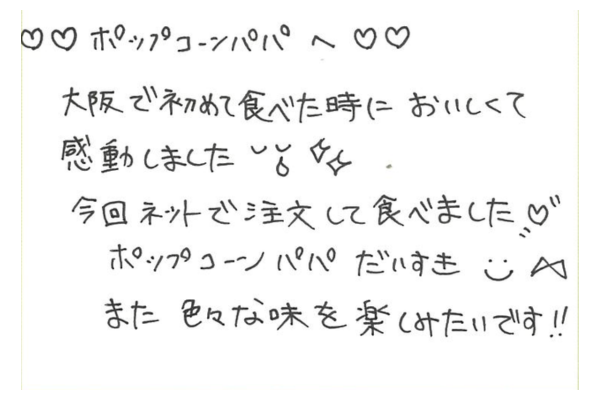 ♡♡ ポップコーンパパへ ♡♡
大阪で初めて食べた時に おいしくて
感動しました
今回 ネットで注文して食べました♡
ポップコーンパパ だいすき
また 色々な味を楽しみたいです!!